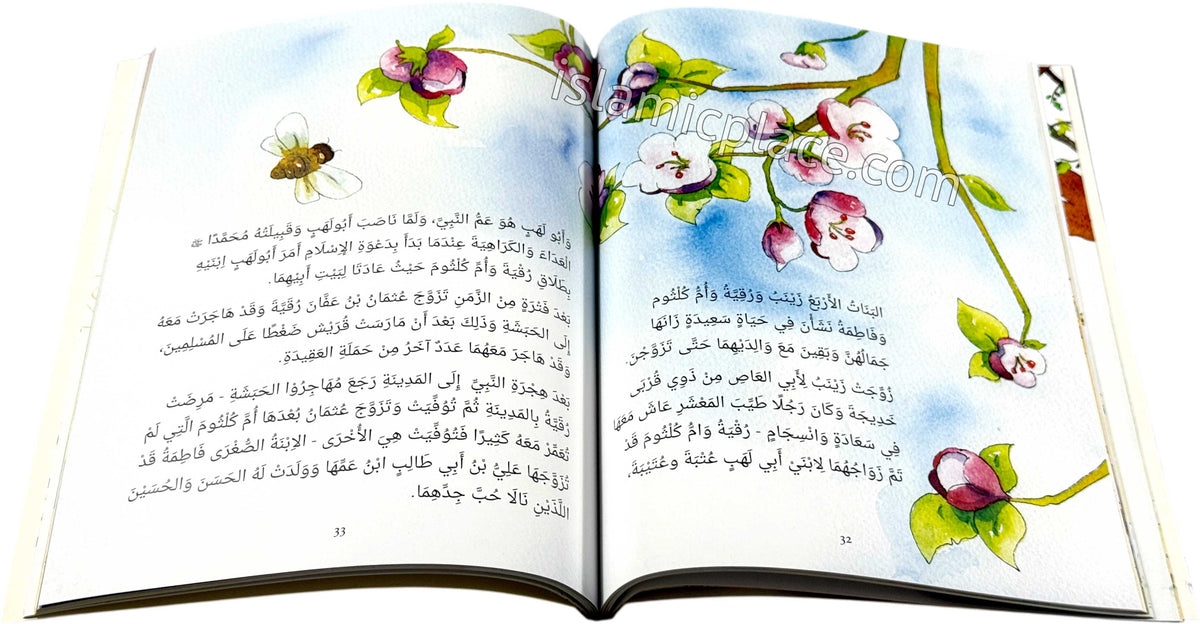 islamicplace.com
البَنَاتُ الأَرْبَعُ زَيْنَبُ وَرُقَيَّةُ وَأُمُّ كُلْثُوم
وَفَاطِمَةُ نَشَأْنَ فِي حَيَاةٍ سَعِيدَةٍ زَانَهَا
جَمَالُهُنَّ وَبَقِينَ مَعَ وَالِدَيْهِمَا حَتَّى تَزَوَّجْنَ.
زُوِّجَتْ زَيْنَبُ لِأَبِي العَاصِ مِنْ ذَوِي قُرْبَى
خَدِيجَةَ وَكَانَ رَجُلًا طَيِّبَ المَعْشَرِ عَاشَ مَعَهَا
فِي سَعَادَةٍ وَانْسِجَامٍ - رُقْيَةُ وَامُّ كُلْثُومَ قَدْ
تَمَّ زَوَاجُهُمَا لِابْنَيْ أَبِي لَهَبٍ عُتْبَةَ وعُتَيْبَةَ،
32
وَأَبُو لَهَبٍ هُوَ عَمُّ النَّبِيِّ، وَلَمَّا نَاصَبَ أَبُولَهَبٍ وَقَبِيلَتُهُ مُحَمَّدًا ﷺ
الْعَدَاءَ وَالكَرَاهِيَةَ عِنْدَمَا بَدَأَ بِدَعْوَةِ الإِسْلَامِ أَمَرَ أَبُولَهَبٍ اِبْنَيْهِ
بِطَلَاقِ رُقْيَةَ وَأُمِّ كُلْثُومَ حَيْثُ عَادَتَا لِبَيْتِ أَبِيْهِمَا.
بَعْدَ فَتْرَةٍ مِنْ الزَّمَنِ تَزَوَّجَ عُثمَانُ بْنُ عَفَّانَ رُقَيَّةَ وَقَدْ هَاجَرَتْ مَعَهُ
إِلَى الحَبَشَةِ وَذَلِكَ بَعْدَ أَنْ مَارَسَتْ قُرَيْش ضَغْطًا عَلَى المُسْلِمِينَ،
وَقَدْ هَاجَرَ مَعَهُمَا عَدَدٌ آخَرُ مِنْ حَمَلَةِ العَقِيدَةِ.
بَعْدَ هِجْرَةِ النَّبِيِّ إِلَى المَدِينَةِ رَجَعَ مُهَاجِرُوْا الحَبَشَةِ - مَرِضَتْ
رُقْيَّةُ بِالمَدِينَةِ ثُمَّ تُوُفِّيَتْ وَتَزَوَّجَ عُثمَانُ بُعْدَهَا أُمَّ كُلْثُومَ الَّتِي لَمْ
تُعَمِّرْ مَعَهُ كَثِيرًا فَتُوُفِّيَتْ هِيَ الأُخْرَى - الاِبْنَةُ الصُّغْرَى فَاطِمَةُ قَدْ
تُزَوَّجَهَا عَلِيُّ بْنُ أَبِي طَالِبٍ ابْنُ عَمِّهَا وَوَلَدَتْ لَهُ الحَسَنَ وَالحُسَيْنَ
اللَّذَيْنِ نَالَا حُبَّ جِدِّهِمَا.
33